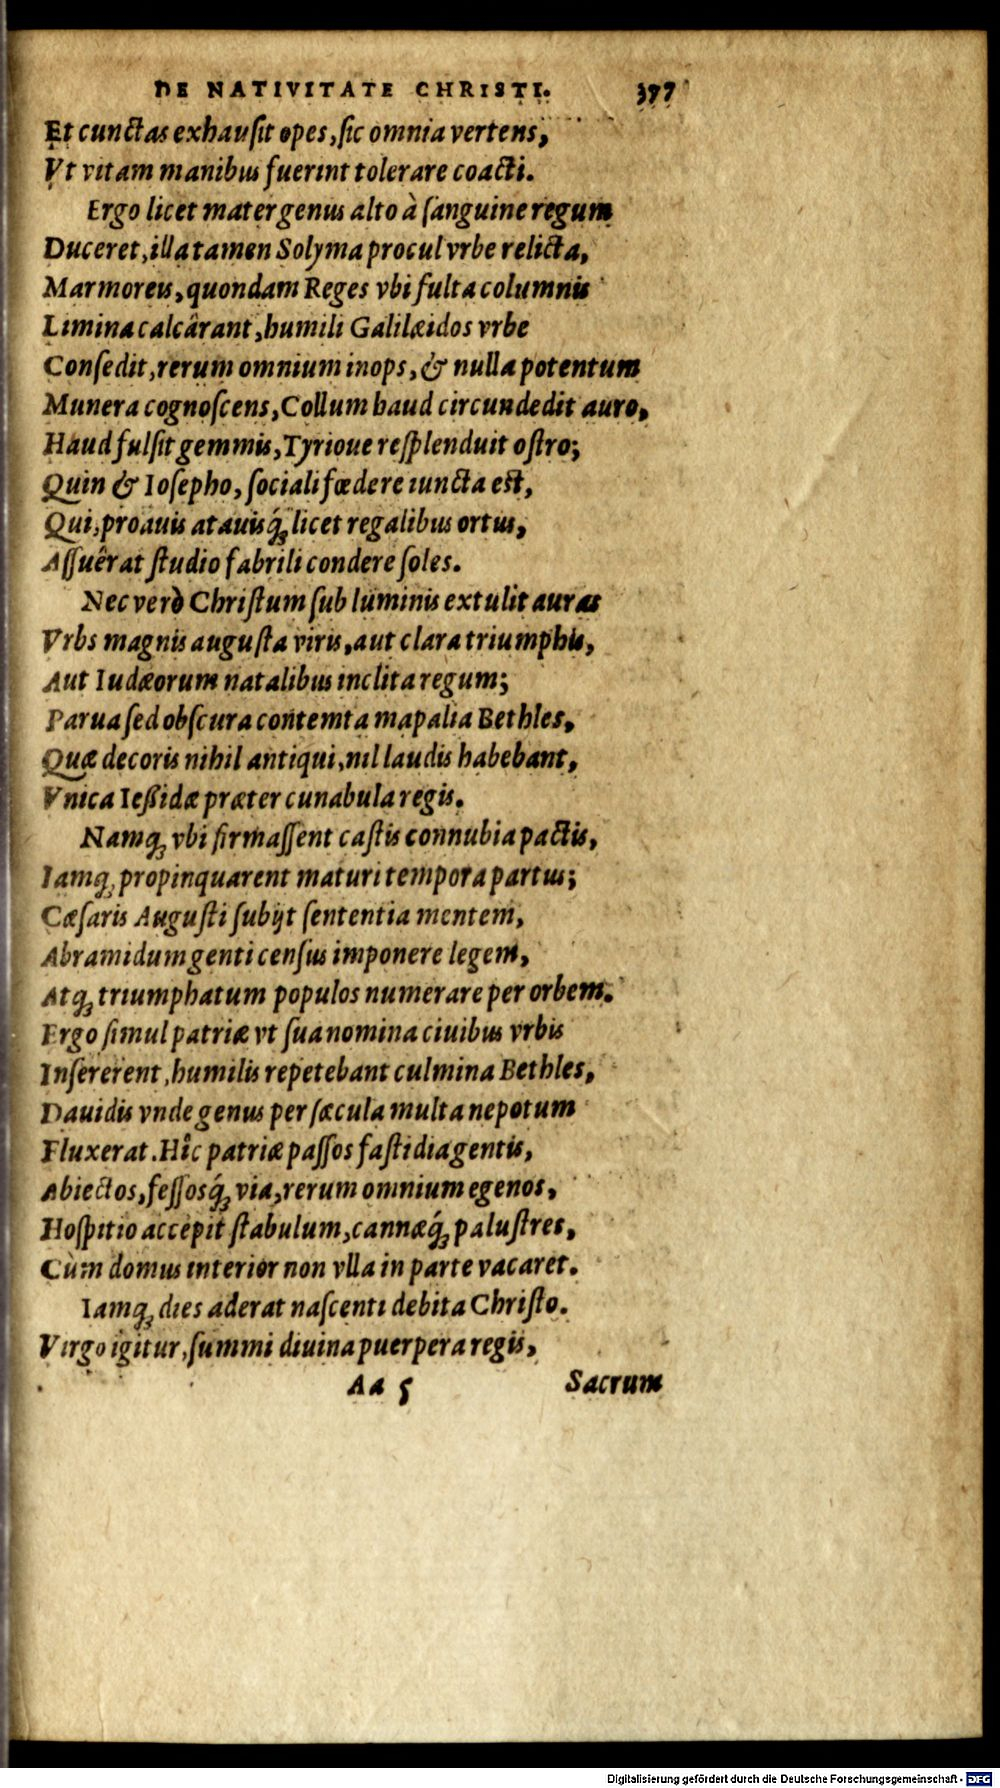 DE NATIVITATE CHRISTI. 377
Et cunctas exhausit opes, sic omnia vertens,
Vt vitam manibus fuerint tolerare coacti.
Ergo licet mater genus alto à sanguine regum
Duceret, illa tamen Solyma procul vrbe relicta,
Marmoreis, quondam Reges vbi fulta columnis
Limina calcârant, humili Galilæidos vrbe
Consedit, rerum omnium inops, & nulla potentum
Munera cognoscens, Collum haud circundedit auro,
Haud fulsit gemmis, Tyrioue resplenduit ostro;
Quin & Iosepho, sociali fœdere iuncta est,
Qui, proauis atauisq́; licet regalibus ortus,
Assuêrat studio fabrili condere soles.
Nec verò Christum sub luminis extulit auras
Vrbs magnis augusta viris, aut clara triumphis,
Aut Iudæorum natalibus inclita regum;
Parua sed obscura contemta mapalia Bethles,
Quæ decoris nihil antiqui, nil laudis habebant,
Vnica Iessidæ præter cunabula regis.
Namq; vbi firmassent castis connubia pactis,
Iamq; propinquarent maturi tempora partus;
Cæsaris Augusti subijt sententia mentem,
Abramidum genti census imponere legem,
Atq; triumphatum populos numerare per orbem.
Ergo simul patriæ vt sua nomina ciuibus vrbis
Insererent, humilis repetebant culmina Bethles,
Dauidis vnde genus per sæcula multa nepotum
Fluxerat. Hîc patriæ passos fastidia gentis,
Abiectos, fessosq́; via, rerum omnium egenos,
Hospitio accepit stabulum, cannæq́; palustres,
Cùm domus interior non vlla in parte vacaret.
Iamq; dies aderat nascenti debita Christo.
Virgo igitur, summi diuina puerpera regis,
Aa 5 Sacrum
Digitalisierung gefördert durch die Deutsche Forschungsgemeinschaft - DFG